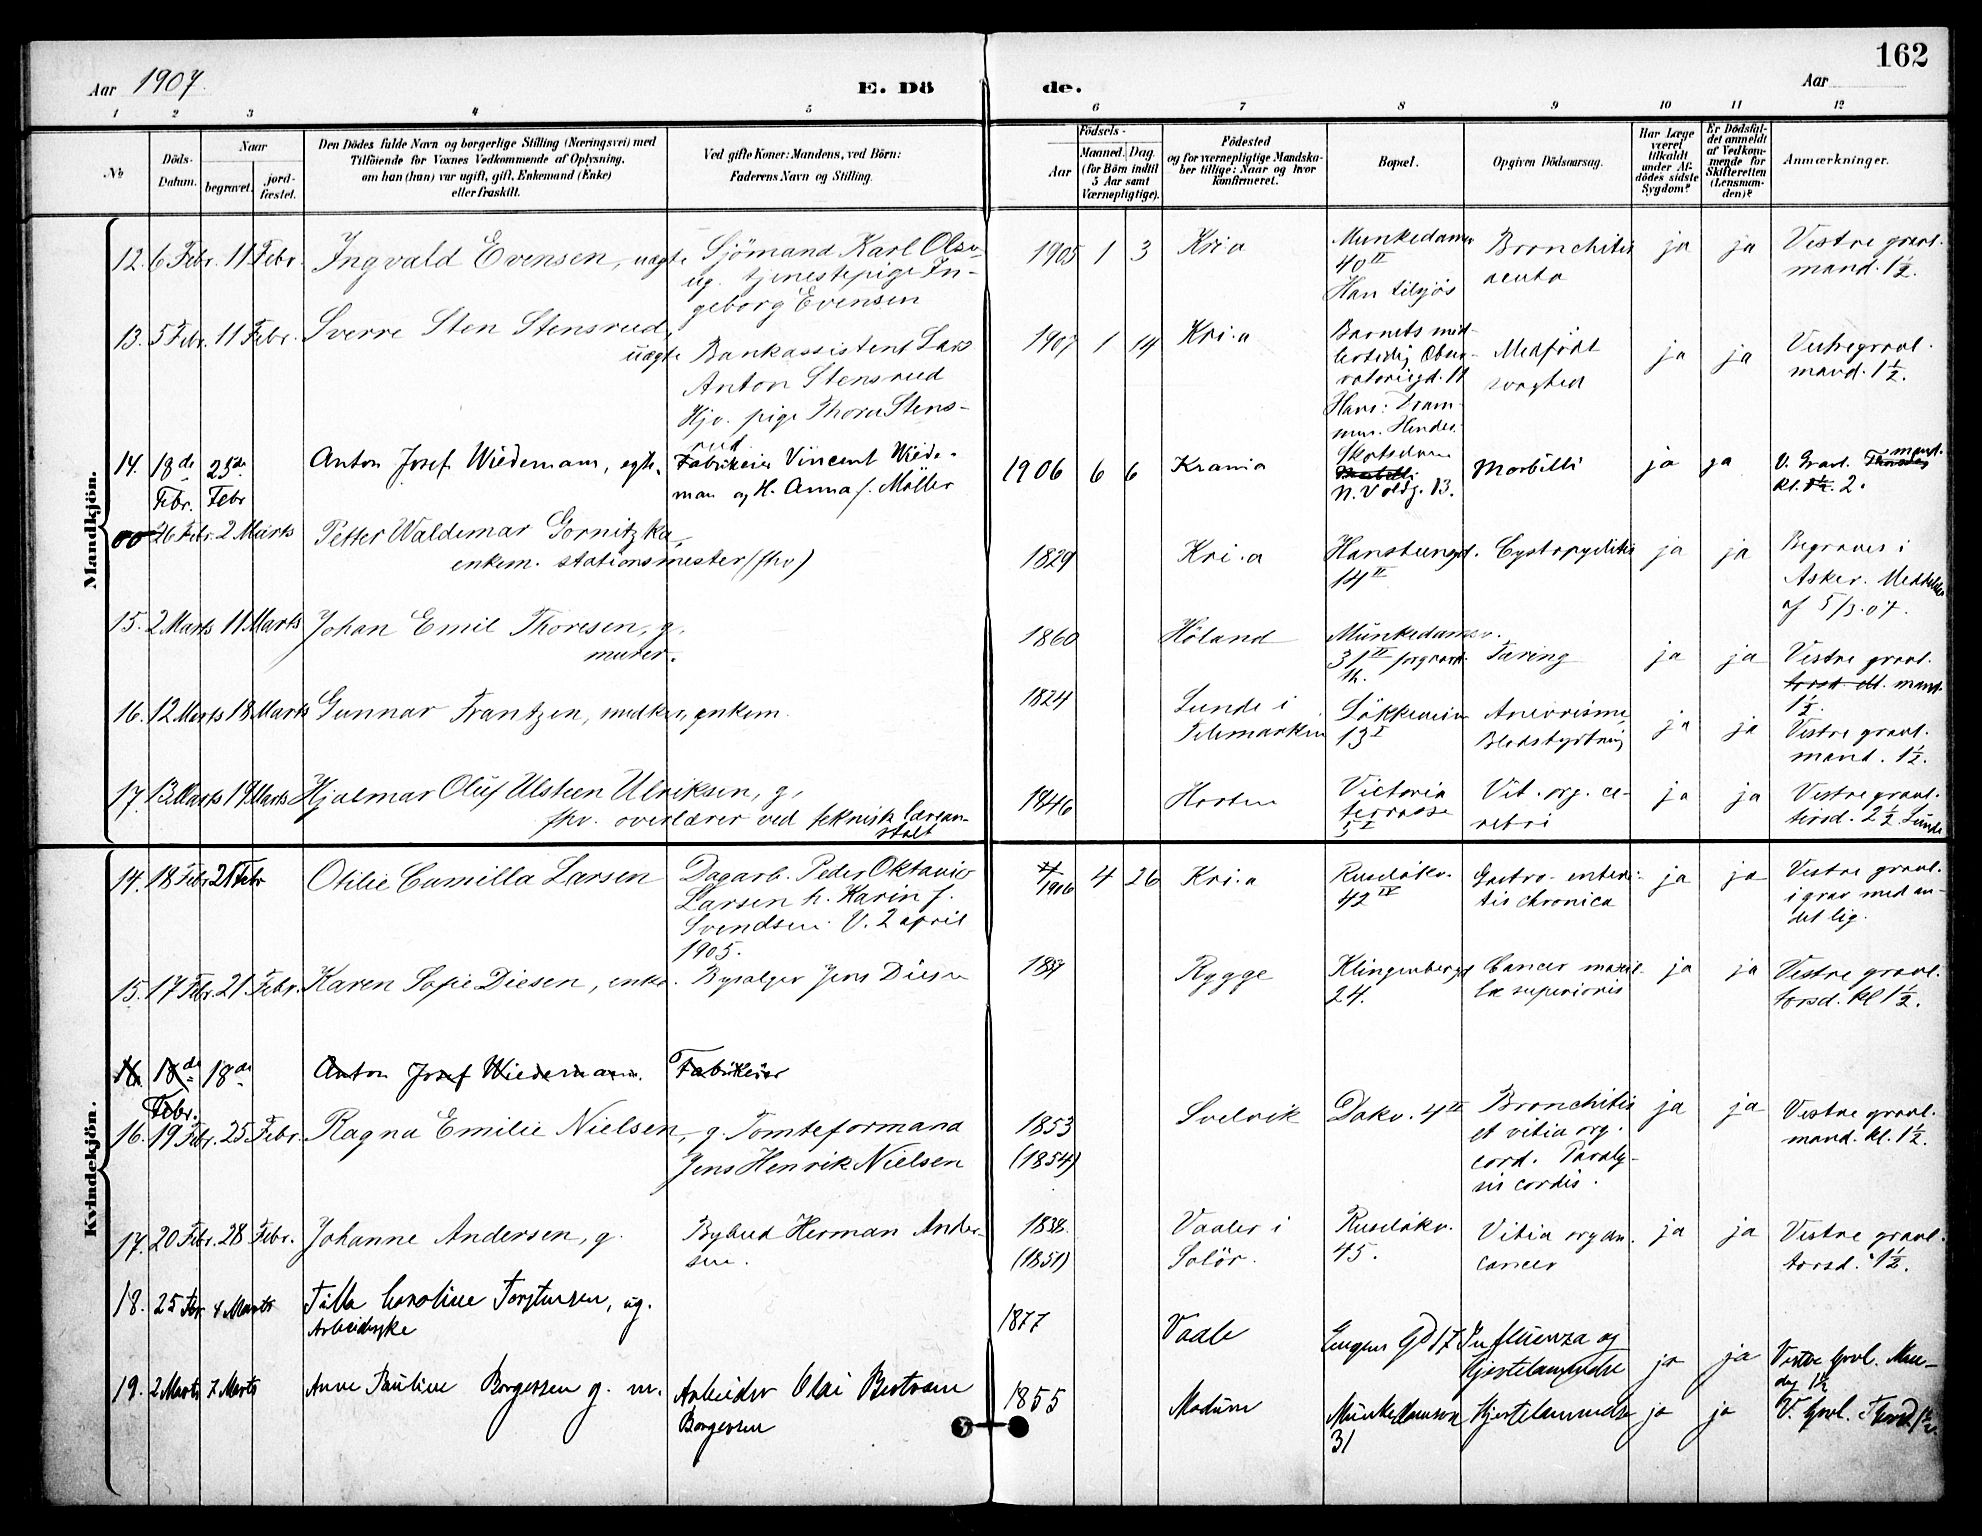 162
Aar 1907.
E. Dö de.
Aar
1 2 3 4 5 6 7 8 9 10 11 12
No
Döds-Datum.
Naar
begravet.
jord-fæstet.
Den Dödes fulde Navn og borgerlige Stilling (Næringsvei) med
Tilföiende for Voxnes Vedkommende af Oplysning,
om han (hun) var ugift, gift, Enkemand (Enke)
eller fraskilt.
Ved gifte Koner: Mandens, ved Börn:
Faderens Navn og Stilling.
Födsels-
Aar
Maaned. Dag.
(for Börn indtil
5 Aar samt
Værnepligtige).
Födested
og for værnepligtige Mandska-
ber tillige: Naar og hvor
konfirmeret.
Bopæl.
Opgiven Dödsaarsag.
Har Læge
været
tilkaldt
under Af-
dödes sidste
Sygdom?
Er Dödsfal-
det anmeldt
af Vedkom-
mende for
Skifteretten
(Lensman-
den)?
Anmærkninger.
Mandkjön.
12. 6 Febr. 11 Febr. Ingvald Evensen, uægte Sjömand Karl Olsen
ug. tjenestepige In-
geborg Evensen
1905 1 3 Kria
Munkedamsv
40 II
Bronchitis
acuta
ja ja
Vestre gravl.
mand. 1 1/2.
13. 5 Febr. 11 Febr. Sverre Sten Stensrud,
uægte Bankassistent Lars
Anton Stensrud
Hjv. pige Thora Stens-
rud.
1907 1 14 Kri.a
Barnets mid-
lertidig Obser-
vatoriegd. 11
Hans: Dram-
men. Hendes:
Medfödt
svaghed
ja ja
Vestre gravl.
mand. 1 1/2.
14. 18de Febr. 25de Febr Anton Josef Wiedemann, egte. Fabrikeier Vincent Wiede-
man og H. Anna f. Møller
1906 6 6 Krania
N. Voldg. 13.
Morbilli
ja ja
V. Gravl. mand.
kl. 2.
00 26 Febr. 2 Marts Petter Waldemar Gornitzka,
enkem. stationsmester (fhv)
1829 Kri.a
14 II
Cystopyelitis
ja ja
Begraves i
Asker. Meddelelse
af 5/3.07.
15. 2 Marts 11 Marts Johan Emil Thoresen, g.
murer.
1860 Höland
Munkedamsv.
31 IV
Tæring
ja ja
Vestre gravl.
mand.
1 1/2.
16. 12 Marts 18 Marts Gunnar Frantzen, enkem.
1824
Lunde i
Telemarken
Lökkeveien
13 I
Aneurisme,
Blodstyrtning
ja ja
Vestre gravl.
mand. 1 1/2.
17. 13 Marts 19 Marts Hjalmar Oluf Ulsteen Ulriksen, g.
fhv. overlærer ved teknisk lærean-
stalt
1846 Horten
Victoria
terrasse
5 I
Vit. org. ce-
rebri
ja ja
Vestre gravl.
tirsd. 2 1/2 Lunde
Kvindekjön.
14. 18 Febr 21 Febr Otilie Camilla Larsen
Dagarb. Peder Oktavio
Larsen h. Karin f.
Svendsen. V. 2 april
1905.
1906 4 26 Kri.a
Ruselökv.
42 IV
Gastro-enteri-
tis chronica
ja ja
Vestre gravl.
i grav med an-
det lig.
15. 17 Febr. 21 Febr. Karen Sofie Diesen, enke. Bysælger Jens Diesen
Rygge
Klingenbergg
24.
Cancer maxil-
læ superioris
ja ja
Vestre gravl.
torsd. kl 1 1/2.
16. 18de Febr. 18de Anton Josef Wiedemann. Fabrikeier
16. 19 Febr. 25 Febr. Ragna Emilie Nielsen, g. Tomteformand
Jens Henrik Nielsen
1853
(1854)
Svelvik
Dokv. 4 II
Bronchitis
et vitia org.
cord. Paraly-
sis cordis.
ja ja
Vestre gravl.
mand. kl. 1 1/2.
17. 20 Febr. 28 Febr. Johanne Andersen, g.
Bybud Herman Ander-
sen.
(1851)
Vaaler i
Solör.
Ruselökv.
45.
Vitia organ.
cancer
ja ja
Vestre gravl.
torsd. 1 1/2.
18. 25 Febr 4 Marts Tilla Caroline Torstensen, ug.
Arbeiderske
1877 Vaale
Influenza og
Hjertelammelse
ja ja
Vestre Gravl. Man-
dag 1 1/2
19. 2 Marts 7 Marts Anne Pauline Borgersen g. m. Arbeider Olai Bertram
Borgersen
1855 Modum
Munkedamsv
31
Hjertelammelse
ja ja
V. Gravl. Torsd. 1 1/2.